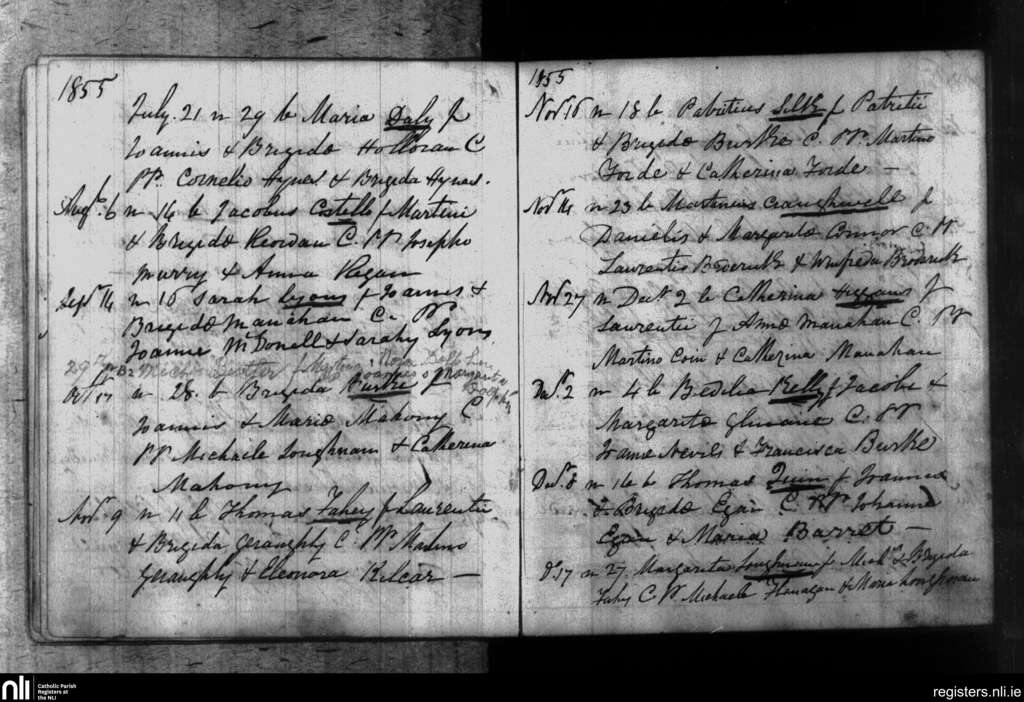 1855
July. 21 n 29 b Maria Daly f
Joannis & Brigidæ Holloran C
PP. Cornelio Hynes & Brigida Hynes.
Augt. 6 n 14 b Jacobus Costello f Martini
& Brigidæ Reordan C. PP Josepho
Murry & Anna Regan
Sept. 14 n 16 Sarah Lyons f Joannis &
Brigidæ Manahan C. PP
Joanne McDonell & Sarah Lyons
29 Nora
Joannes & Margarita
Oct 17 n 28. b Brigida Burke f
Joannis & Mariæ Mahony C
PP Michaele Loughnam & Catherina
Mahony
Novr. 9 n 11 b Thomas Fahey f Laurentii
& Brigida Geraughty C PP Martino
Geraughty & Eleonora Kilcar —
1855
Novr 16 n 18 b Patritius Silk f Patritii
& Brigidæ Burke C. PP. Martino
Forde & Catherina Forde —
Novr 14 n 23 b Martinus Craughwell f
Danielis & Margaritæ Connor C. PP
Laurentio Broderick & Winifrida Broderick
Novr 27 n Dect 2 b Catherina Higgans f
Laurentii f Annæ Manahan C. PP
Martino Coin & Catherina Manahan
Dec. 2 n 4 b Bedelia Kelly f Jacobi &
Margaritæ C. PP
Joanne Nevils & Francisca Burke
Dec. 8 n 16 b Thomas Quin f Joannis
& Brigidæ Egan C. PP. Johanne
Egan & Maria Barret —
D 17 n 27 Margarita Loughnan f Mich & Brigida
Fahy C P Michaele Flanagan & Maria Loughnan
nli
Catholic Parish
Registers at
the NLI
registers.nli.ie